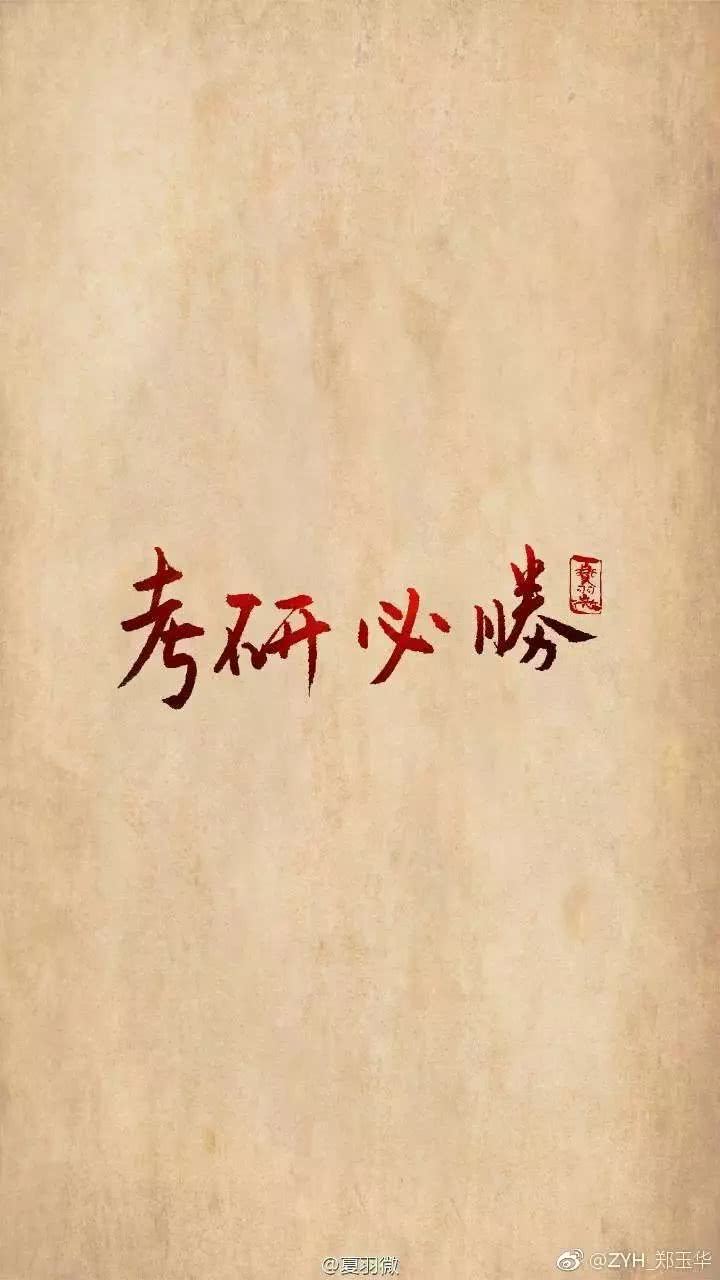 考研必勝
夏羽微
@夏羽微
@ZYH_郑玉华